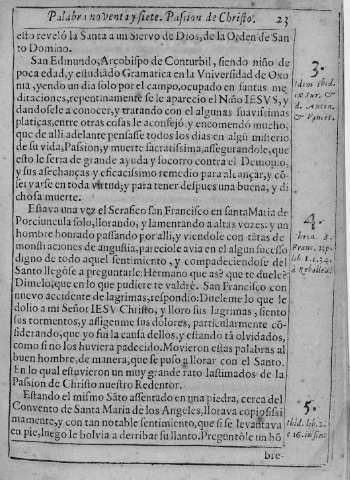 Palabra noventa y siete. Passion de Christo. 23
esto reveló la Santa a un Siervo de Dios, de la Orden de San-
to Domino.
San Edmundo, Arçobispo de Conturbil, siendo niño de
poca edad, y estudiãdo Gramatica en la Vniversidad de Oxo
nia, yendo un dia solo por el campo, ocupado en santas me
ditaciones, repentinamente se le aparecio el Niño IESVS, y
dandosele a conocer, y tratando con el algunas suavissimas
platicas, entre otras cosas le aconsejó, y encomendó mucho,
que de alli adelante pensasse todos los dias en algũ misterio
de su vida, Passion, y muerte sacratissima, assegurandole, que
esto le seria de grande ayuda y socorro contra el Demonio,
y sus assechanças, y eficacissimo remedio para alcançar, y cõ-
servarse en toda virtud, y para tener despues una buena, y di
chosa muerte.
Estava una vez el Serafico san Francisco en santa Maria de
Porciuncula solo, llorando, y lamentando a altas vozes: y un
hombre honrado passando por alli, y viendole con tãtas de-
monstraciones de angustia, pareciole avia en el algun sucesso
digno de todo aquel sentimiento, y compadeciendose del
Santo llegòse a preguntarle: Hermano que as? que te duele?
Dimelo, que en lo que pudiere te valdrè. San Francisco con
nuevo accidente de lagrimas, respondio: Dueleme lo que le
dolio a mi Señor IESV Christo, y lloro sus lagrimas, siento
sus tormentos, y afligenme sus dolores, particularmente cõ-
siderando, que yo fui la causa dellos, y estando tã olvidados,
como si no los huviera padecido. Movieron estas palabras al
buen hombre, de manera, que se puso a llorar con el Santo.
En lo qual estuvieron un muy grande rato lastimados de la
Passion de Christo nuestro Redentor.
Estando el mismo Sãto assentado en una piedra, cerca del
Convento de Santa Maria de los Angeles, llorava copiosissi
mamente, y con tan notable sentimiento, que si se levantava
en pie, luego le bolvia a derribar su llanto. Preguntòle un hõ
bre-
3.
Idem ibid.
ex Sur. &
d. Anton.
& Vincet.
4.
S.
Franc. 1. p.
lib. 1. c. 24.
à Rebolled.
5.
Ibid. lib. 2.
c. 16. in fine